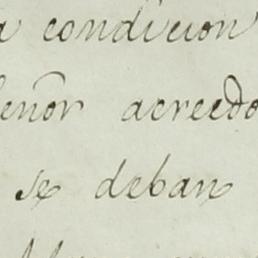 a condicion
enor acreedo
se deban